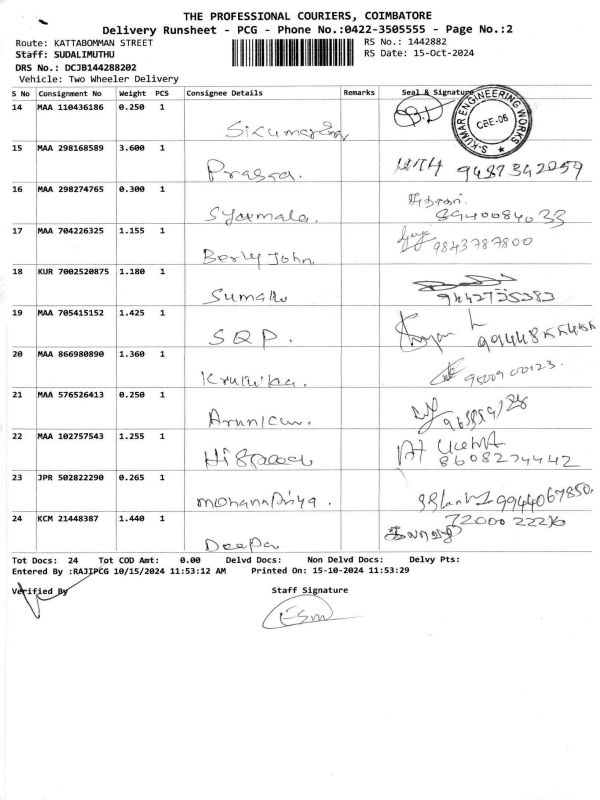 THE PROFESSIONAL COURIERS, COIMBATORE
Delivery Runsheet - PCG - Phone No.:0422-3505555 - Page No.:2
Route: KATTABOMMAN STREET RS No.: 1442882
Staff: SUDALIMUTHU RS Date: 15-Oct-2024
DRS No.: DCJB144288202
Vehicle: Two Wheeler Delivery
S No Consignment No Weight PCS Consignee Details Remarks Seal & Signature
14 MAA 110436186 0.250 1
S-KUMAR ENGINEERING WORKS
CBE-06
15 MAA 298168589 3.600 1
9487342059
16 MAA 298274765 0.300 1
8940084033
17 MAA 704226325 1.155 1
Berly John. 9843787800
18 KUR 7002520875 1.180 1
19 MAA 705415152 1.425 1
SQP.
20 MAA 866980890 1.360 1
21 MAA 576526413 0.250 1
22 MAA 102757543 1.255 1
8608274442
23 JPR 502822290 0.265 1
9944067850.
24 KCM 21448387 1.440 1
Deepa
Tot Docs: 24 Tot COD Amt: 0.00 Delvd Docs: Non Delvd Docs: Delvy Pts:
Entered By :RAJIPCG 10/15/2024 11:53:12 AM Printed On: 15-10-2024 11:53:29
Verified By Staff Signature